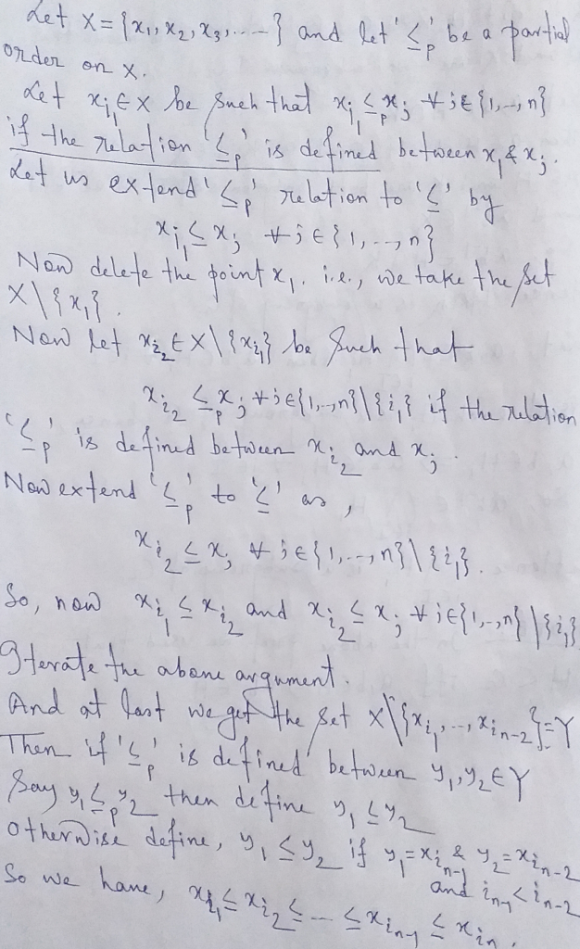 Let X = {x₁, x₂, x₃, ....} and let '≤ₚ' be a partial
order on X.
Let x_{i₁} ∈ X be such that x_{i₁} ≤ₚ x_j ∀ j ∈ {1,..,n}
if the relation '≤ₚ' is defined between x₁ & x_j.
Let us extend '≤ₚ' relation to '≤' by
x_{i₁} ≤ x_j ∀ j ∈ {1, --, n}
Now delete the point x₁. i.e., we take the set
X\{x₁}.
Now let x_{i₂} ∈ X\{x_{i₁}} be such that
x_{i₂} ≤ₚ x_j ∀ j ∈ {1,--,n}\{i₁} if the relation
'≤ₚ' is defined between x_{i₂} and x_j.
Now extend '≤ₚ' to '≤' as,
x_{i₂} ≤ x_j ∀ j ∈ {1,--,n}\{i₁}.
So, now x_{i₁} ≤ x_{i₂} and x_{i₂} ≤ x_j ∀ j ∈ {1,--,n}\{i₁}
Iterate the above argument.
And at last we get the set X\{x_{i₁},--,x_{i_{n-2}}} = Y
Then if '≤ₚ' is defined between y₁, y₂ ∈ Y
Say y₁ ≤ₚ y₂ then define y₁ ≤ y₂
Otherwise define, y₁ ≤ y₂ if y₁ = x_{i_{n-1}} & y₂ = x_{i_{n-2}}
and i_{n-1} < i_{n-2}
So we have, x_{i₁} ≤ x_{i₂} ≤ --- ≤ x_{i_{n-1}} ≤ x_{i_n}.